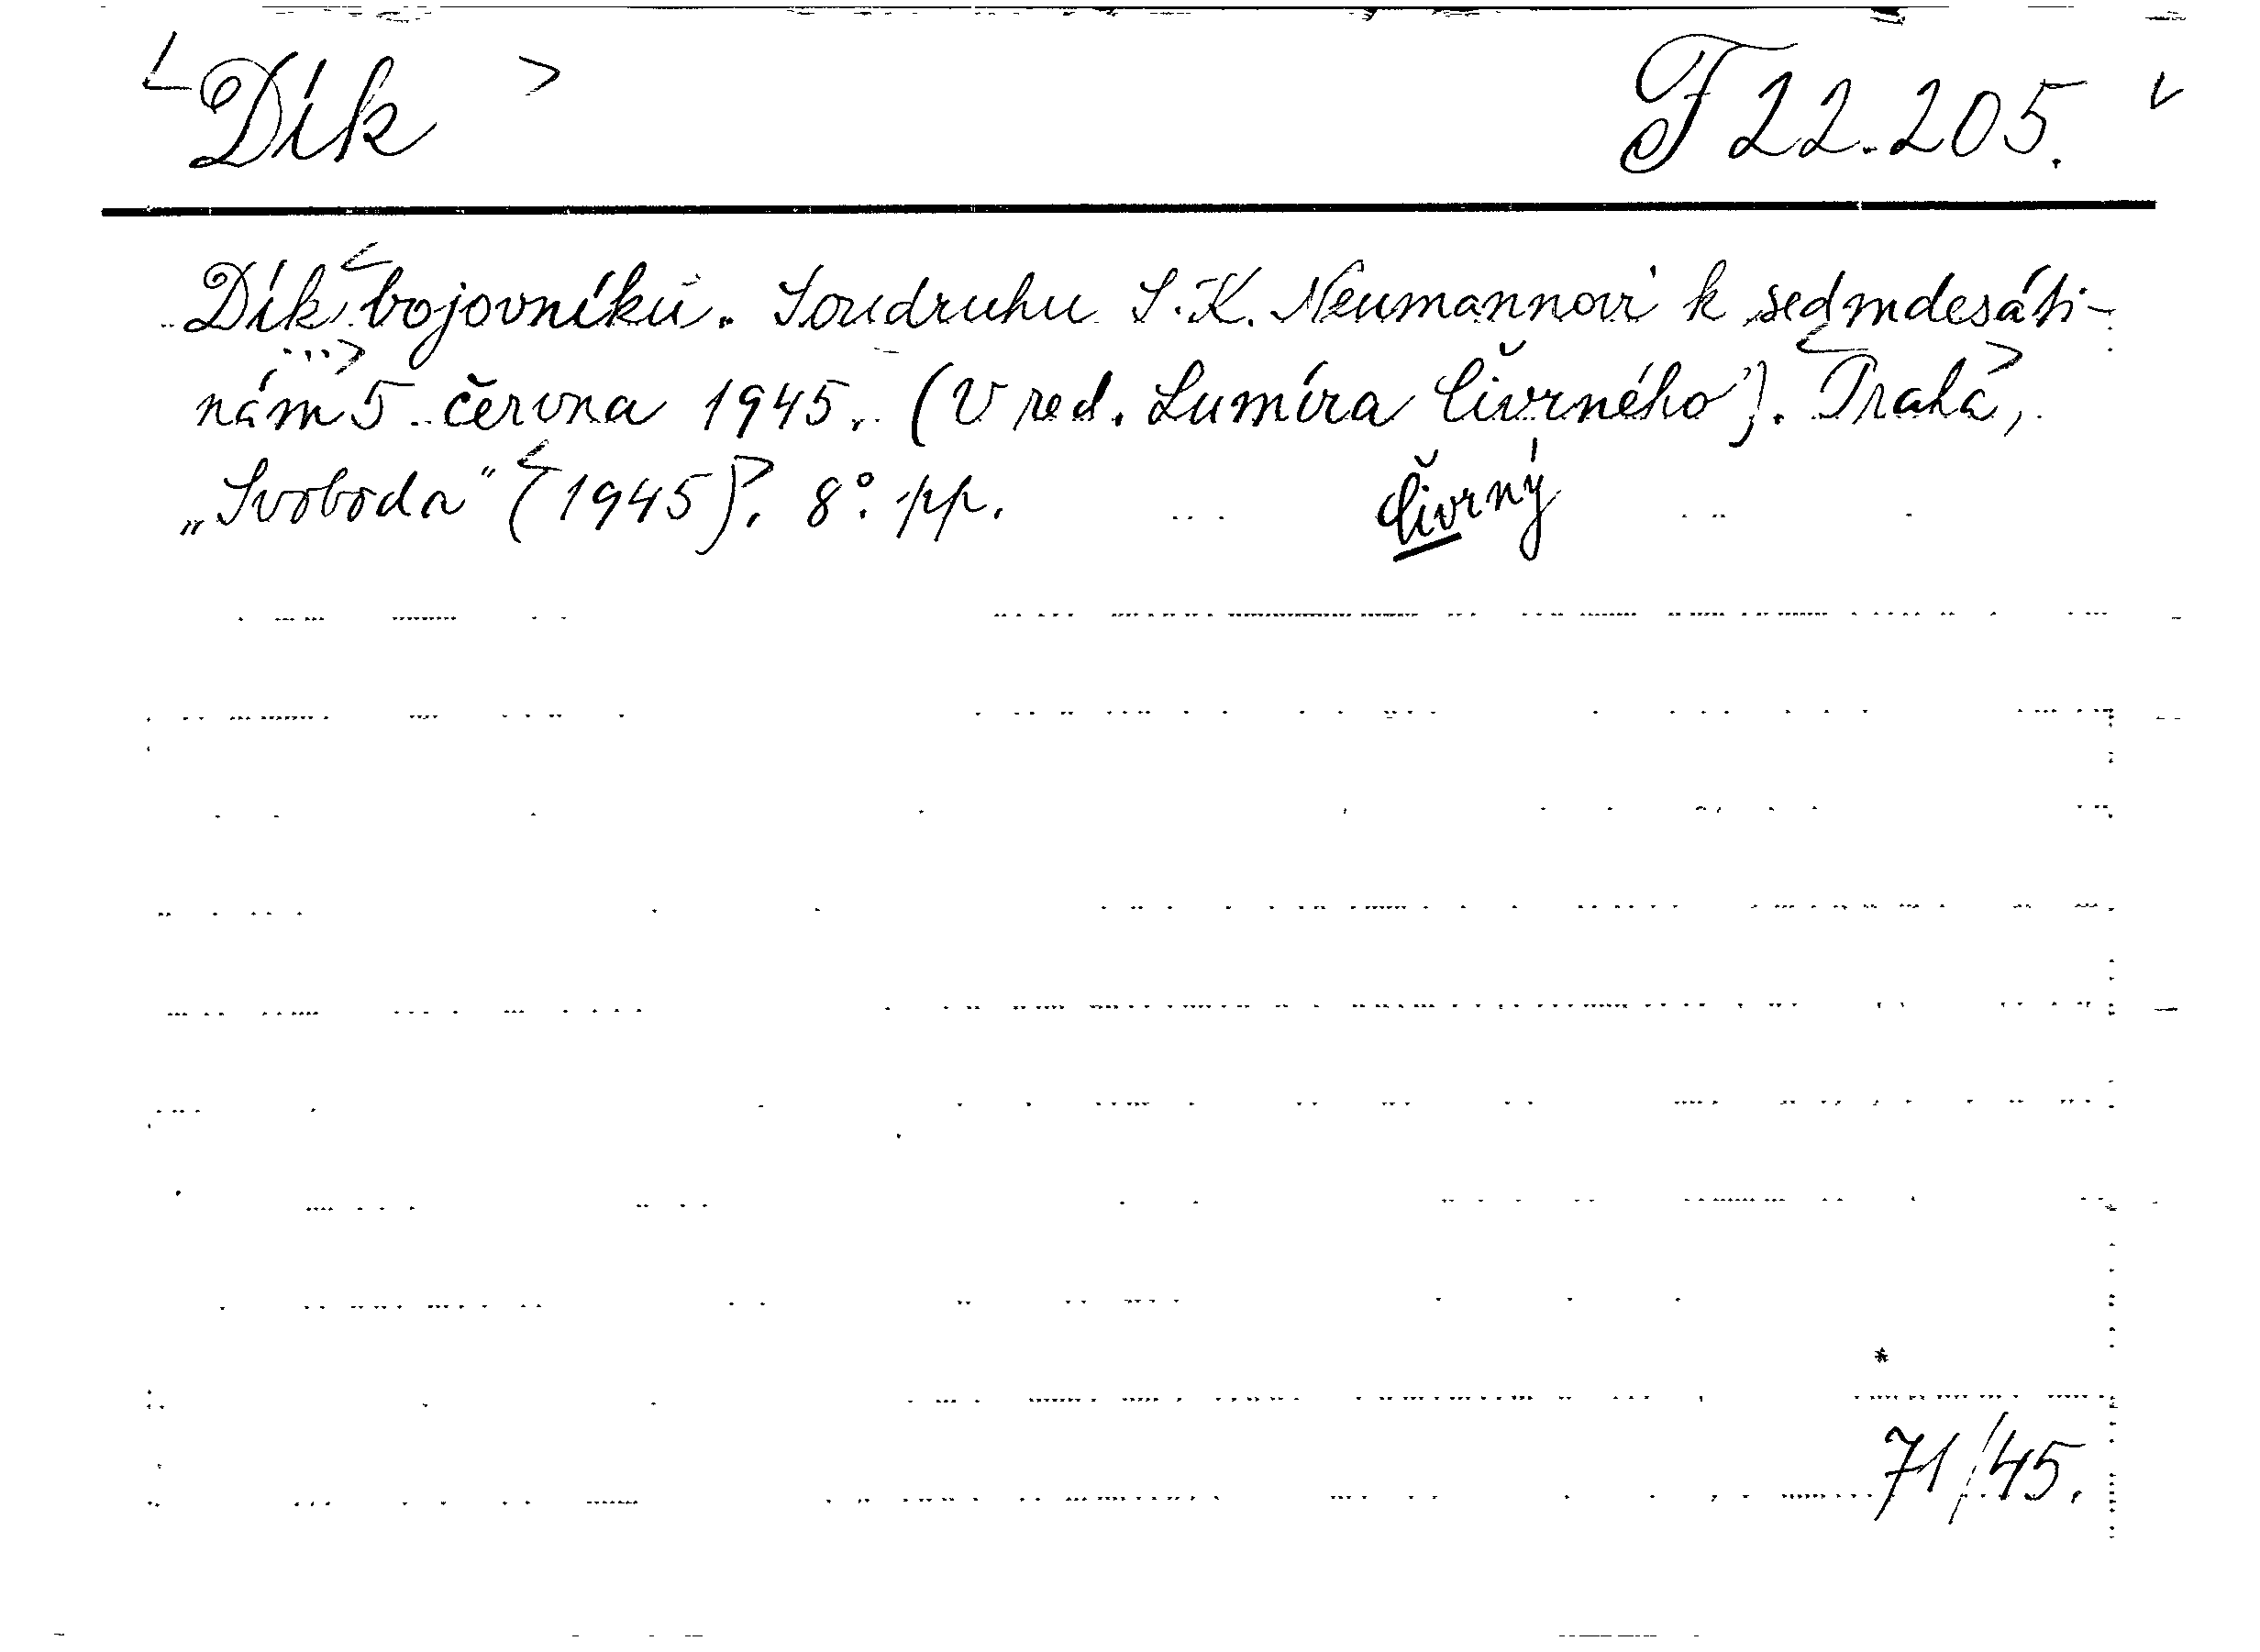 <Dík> F 22.205.
Dík <bojovníku. Soudruhu S. K. Neumannovi k sedmdesáti-
nám ...> 5. června 1945. (V red. Lumíra Čivrného). <Praha>,
„Svoboda" <(1945)>. 8°. pp. Čivrný
*
71/45.